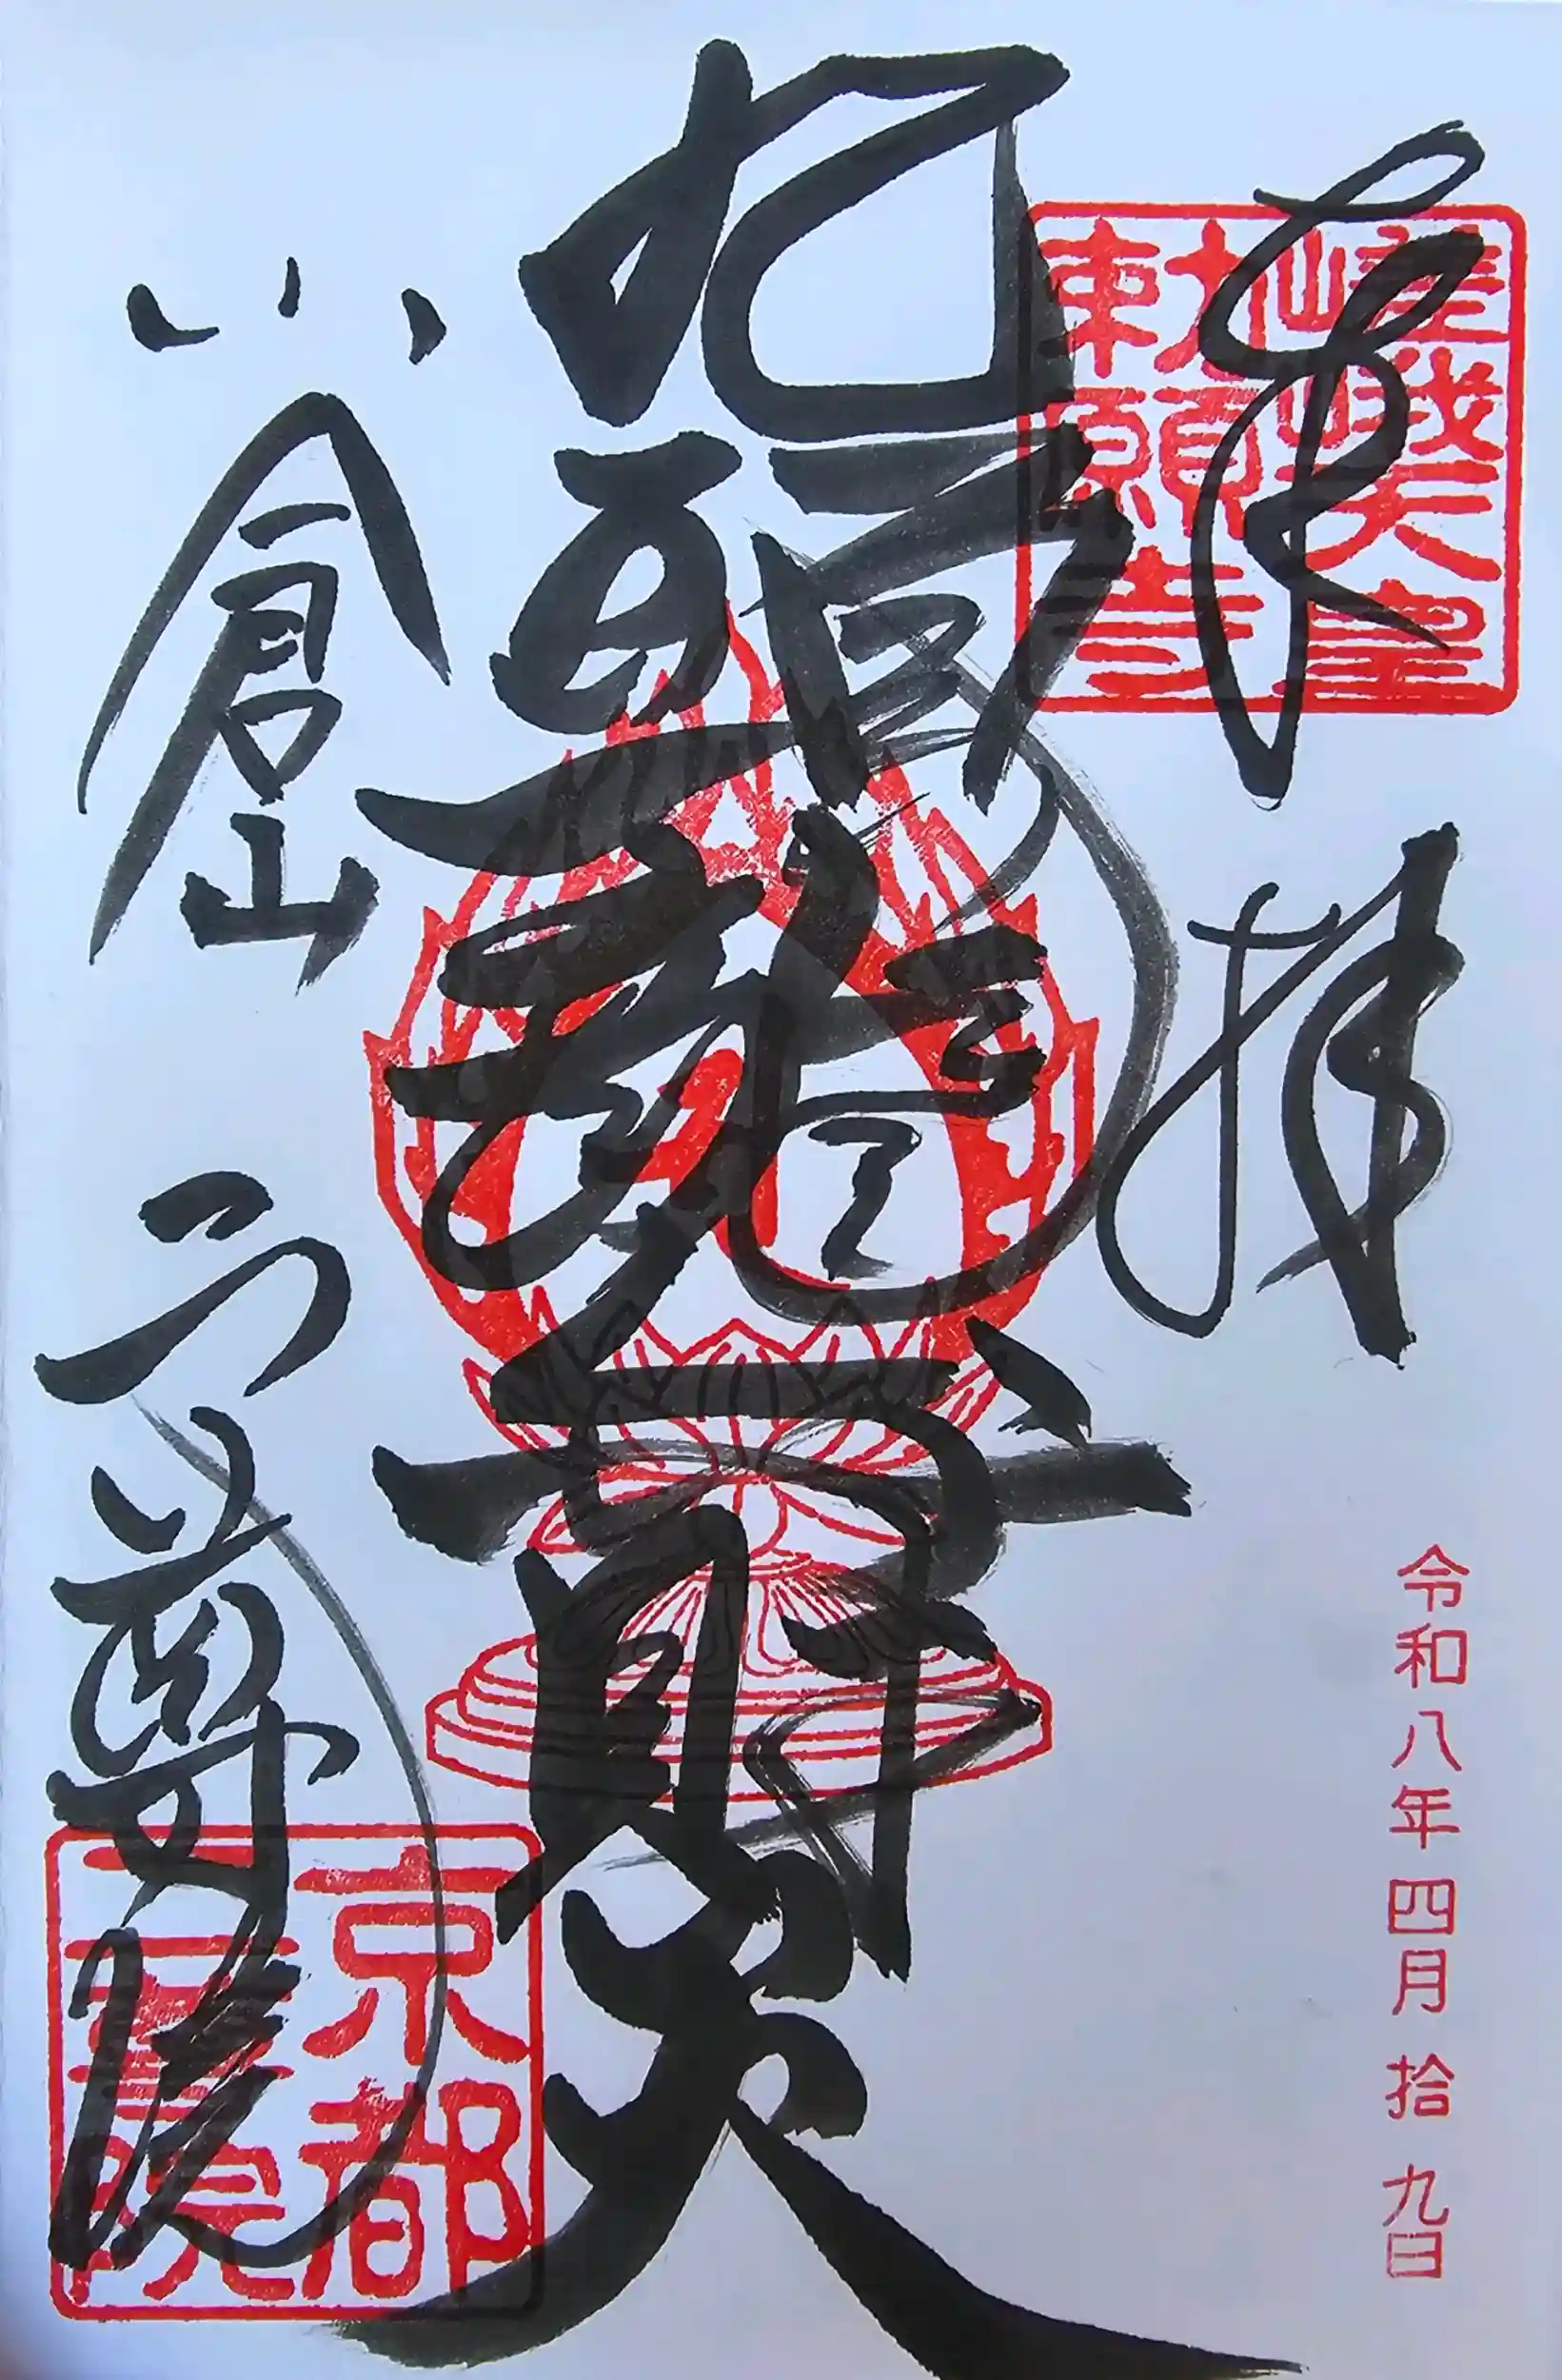 奉拝
嵯峨天皇
勅願寺
令和八年四月拾九日
九頭龍弁財天
小倉山
二尊院
京都
二尊院